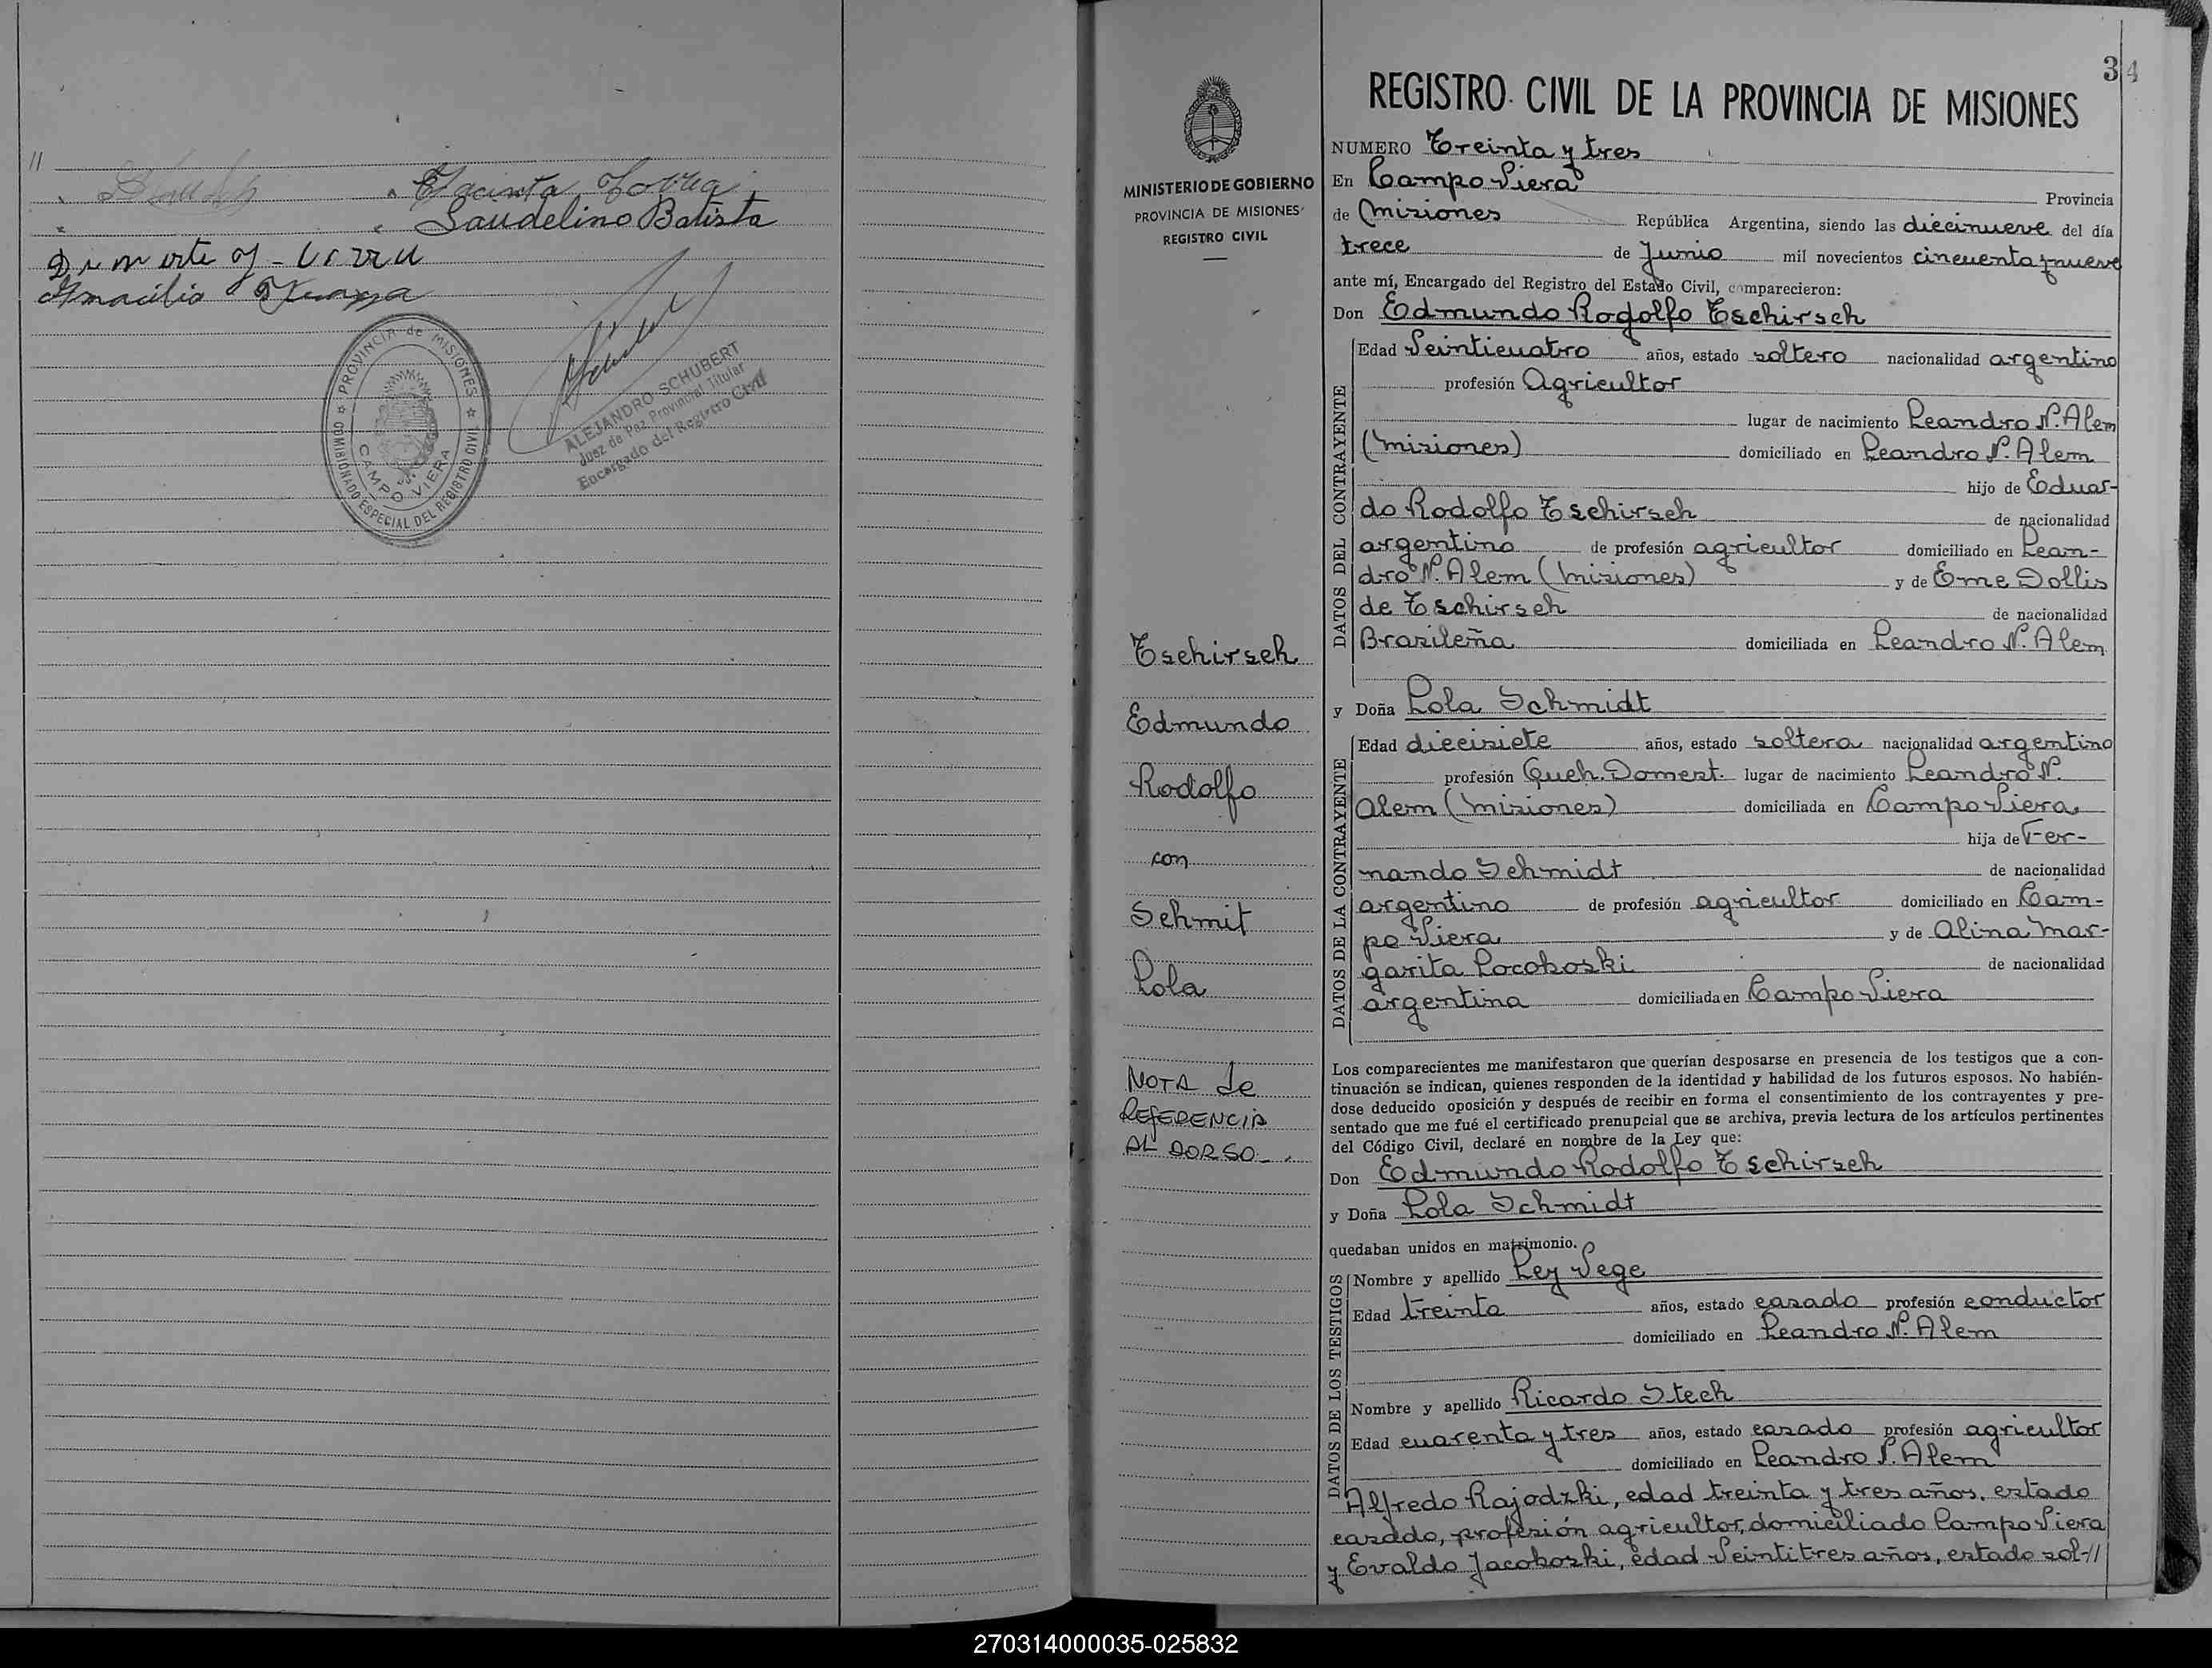 11
Jacinta
Laudelino Batista
Amacilio
PROVINCIA de MISIONES
COMISIONADO ESPECIAL DEL REGISTRO CIVIL
CAMPO VIERA
ALEJANDRO SCHUBERT
Juez de Paz Provincial Titular
Encargado del Registro Civil
MINISTERIO DE GOBIERNO
PROVINCIA DE MISIONES
REGISTRO CIVIL
Tschirsch
Edmundo
Rodolfo
con
Schmit
Lola
NOTA de
REFERENCIA
AL DORSO
34
REGISTRO CIVIL DE LA PROVINCIA DE MISIONES
NUMERO Treinta y tres
En Campo Viera Provincia
de Misiones República Argentina, siendo las diecinueve del día
trece de Junio mil novecientos cincuenta y nueve
ante mí, Encargado del Registro del Estado Civil, comparecieron:
Don Edmundo Rodolfo Tschirsch
DATOS DEL CONTRAYENTE
Edad Veinticuatro años, estado soltero nacionalidad argentino
profesión Agricultor
lugar de nacimiento Leandro N. Alem
(Misiones) domiciliado en Leandro N. Alem
hijo de Eduar-
do Rodolfo Tschirsch de nacionalidad
argentino de profesión agricultor domiciliado en Lean-
dro N. Alem (Misiones) y de Eme Dollis
de Tschirsch de nacionalidad
Brasileña domiciliada en Leandro N. Alem
y Doña Lola Schmidt
DATOS DE LA CONTRAYENTE
Edad diecisiete años, estado soltera nacionalidad argentino
profesión Queh. Domest. lugar de nacimiento Leandro N.
Alem (Misiones) domiciliada en Campo Viera
hija de Fer-
nando Schmidt de nacionalidad
argentino de profesión agricultor domiciliado en Cam-
po Viera y de Alina Mar-
garita Locoboski de nacionalidad
argentina domiciliada en Campo Viera
Los comparecientes me manifestaron que querían desposarse en presencia de los testigos que a con-
tinuación se indican, quienes responden de la identidad y habilidad de los futuros esposos. No habién-
dose deducido oposición y después de recibir en forma el consentimiento de los contrayentes y pre-
sentado que me fué el certificado prenupcial que se archiva, previa lectura de los artículos pertinentes
del Código Civil, declaré en nombre de la Ley que:
Don Edmundo Rodolfo Tschirsch
y Doña Lola Schmidt
quedaban unidos en matrimonio.
DATOS DE LOS TESTIGOS
Nombre y apellido Ley Vege
Edad treinta años, estado casado profesión conductor
domiciliado en Leandro N. Alem
Nombre y apellido Ricardo Stech
Edad cuarenta y tres años, estado casado profesión agricultor
domiciliado en Leandro N. Alem
Alfredo Rajodzki, edad treinta y tres años, estado
casado, profesión agricultor, domiciliado Campo Viera
y Evaldo Jacoboski, edad Veintitres años, estado sol-//
270314000035-025832